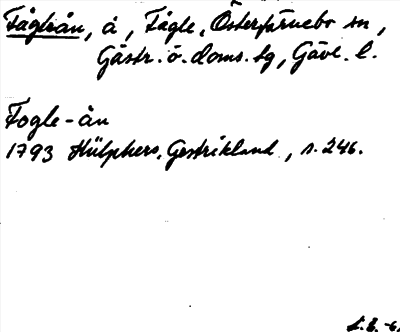 Fågleån, å, Fågle, Österfärnebo sn,
Gästr. ö. doms. tg, Gävl. l.
Fogle-ån
1793 Hülphers, Gestrikland, s. 246.